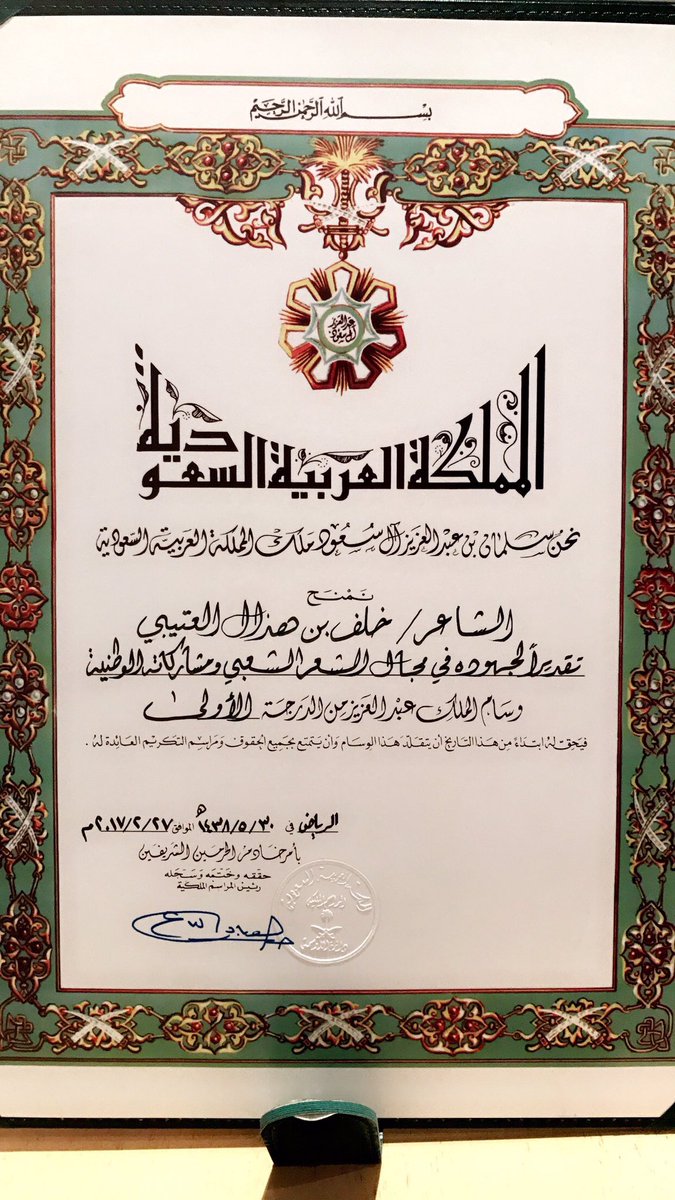 بسم الله الرحمن الرحيم
عبد العزيز
آل سعود
المملكة العربية السعودية
نحن سلمان بن عبد العزيز آل سعود ملك المملكة العربية السعودية
نمنح
الشاعر / خلف بن هذال العتيبي
تقديراً لجهوده في مجال الشعر الشعبي ومشاركاته الوطنية
وسام الملك عبد العزيز من الدرجة الأولى
فيحق له ابتداءً من هذا التاريخ أن يتقلد هذا الوسام وأن يتمتع بجميع الحقوق ومراسم التكريم العائدة له .
الرياض في ١٤٣٨/٥/٣٠هـ الموافق ٢٠١٧/٢/٢٧م
بأمر خادم الحرمين الشريفين
حققه وختمه وسجله
رئيس المراسم الملكية